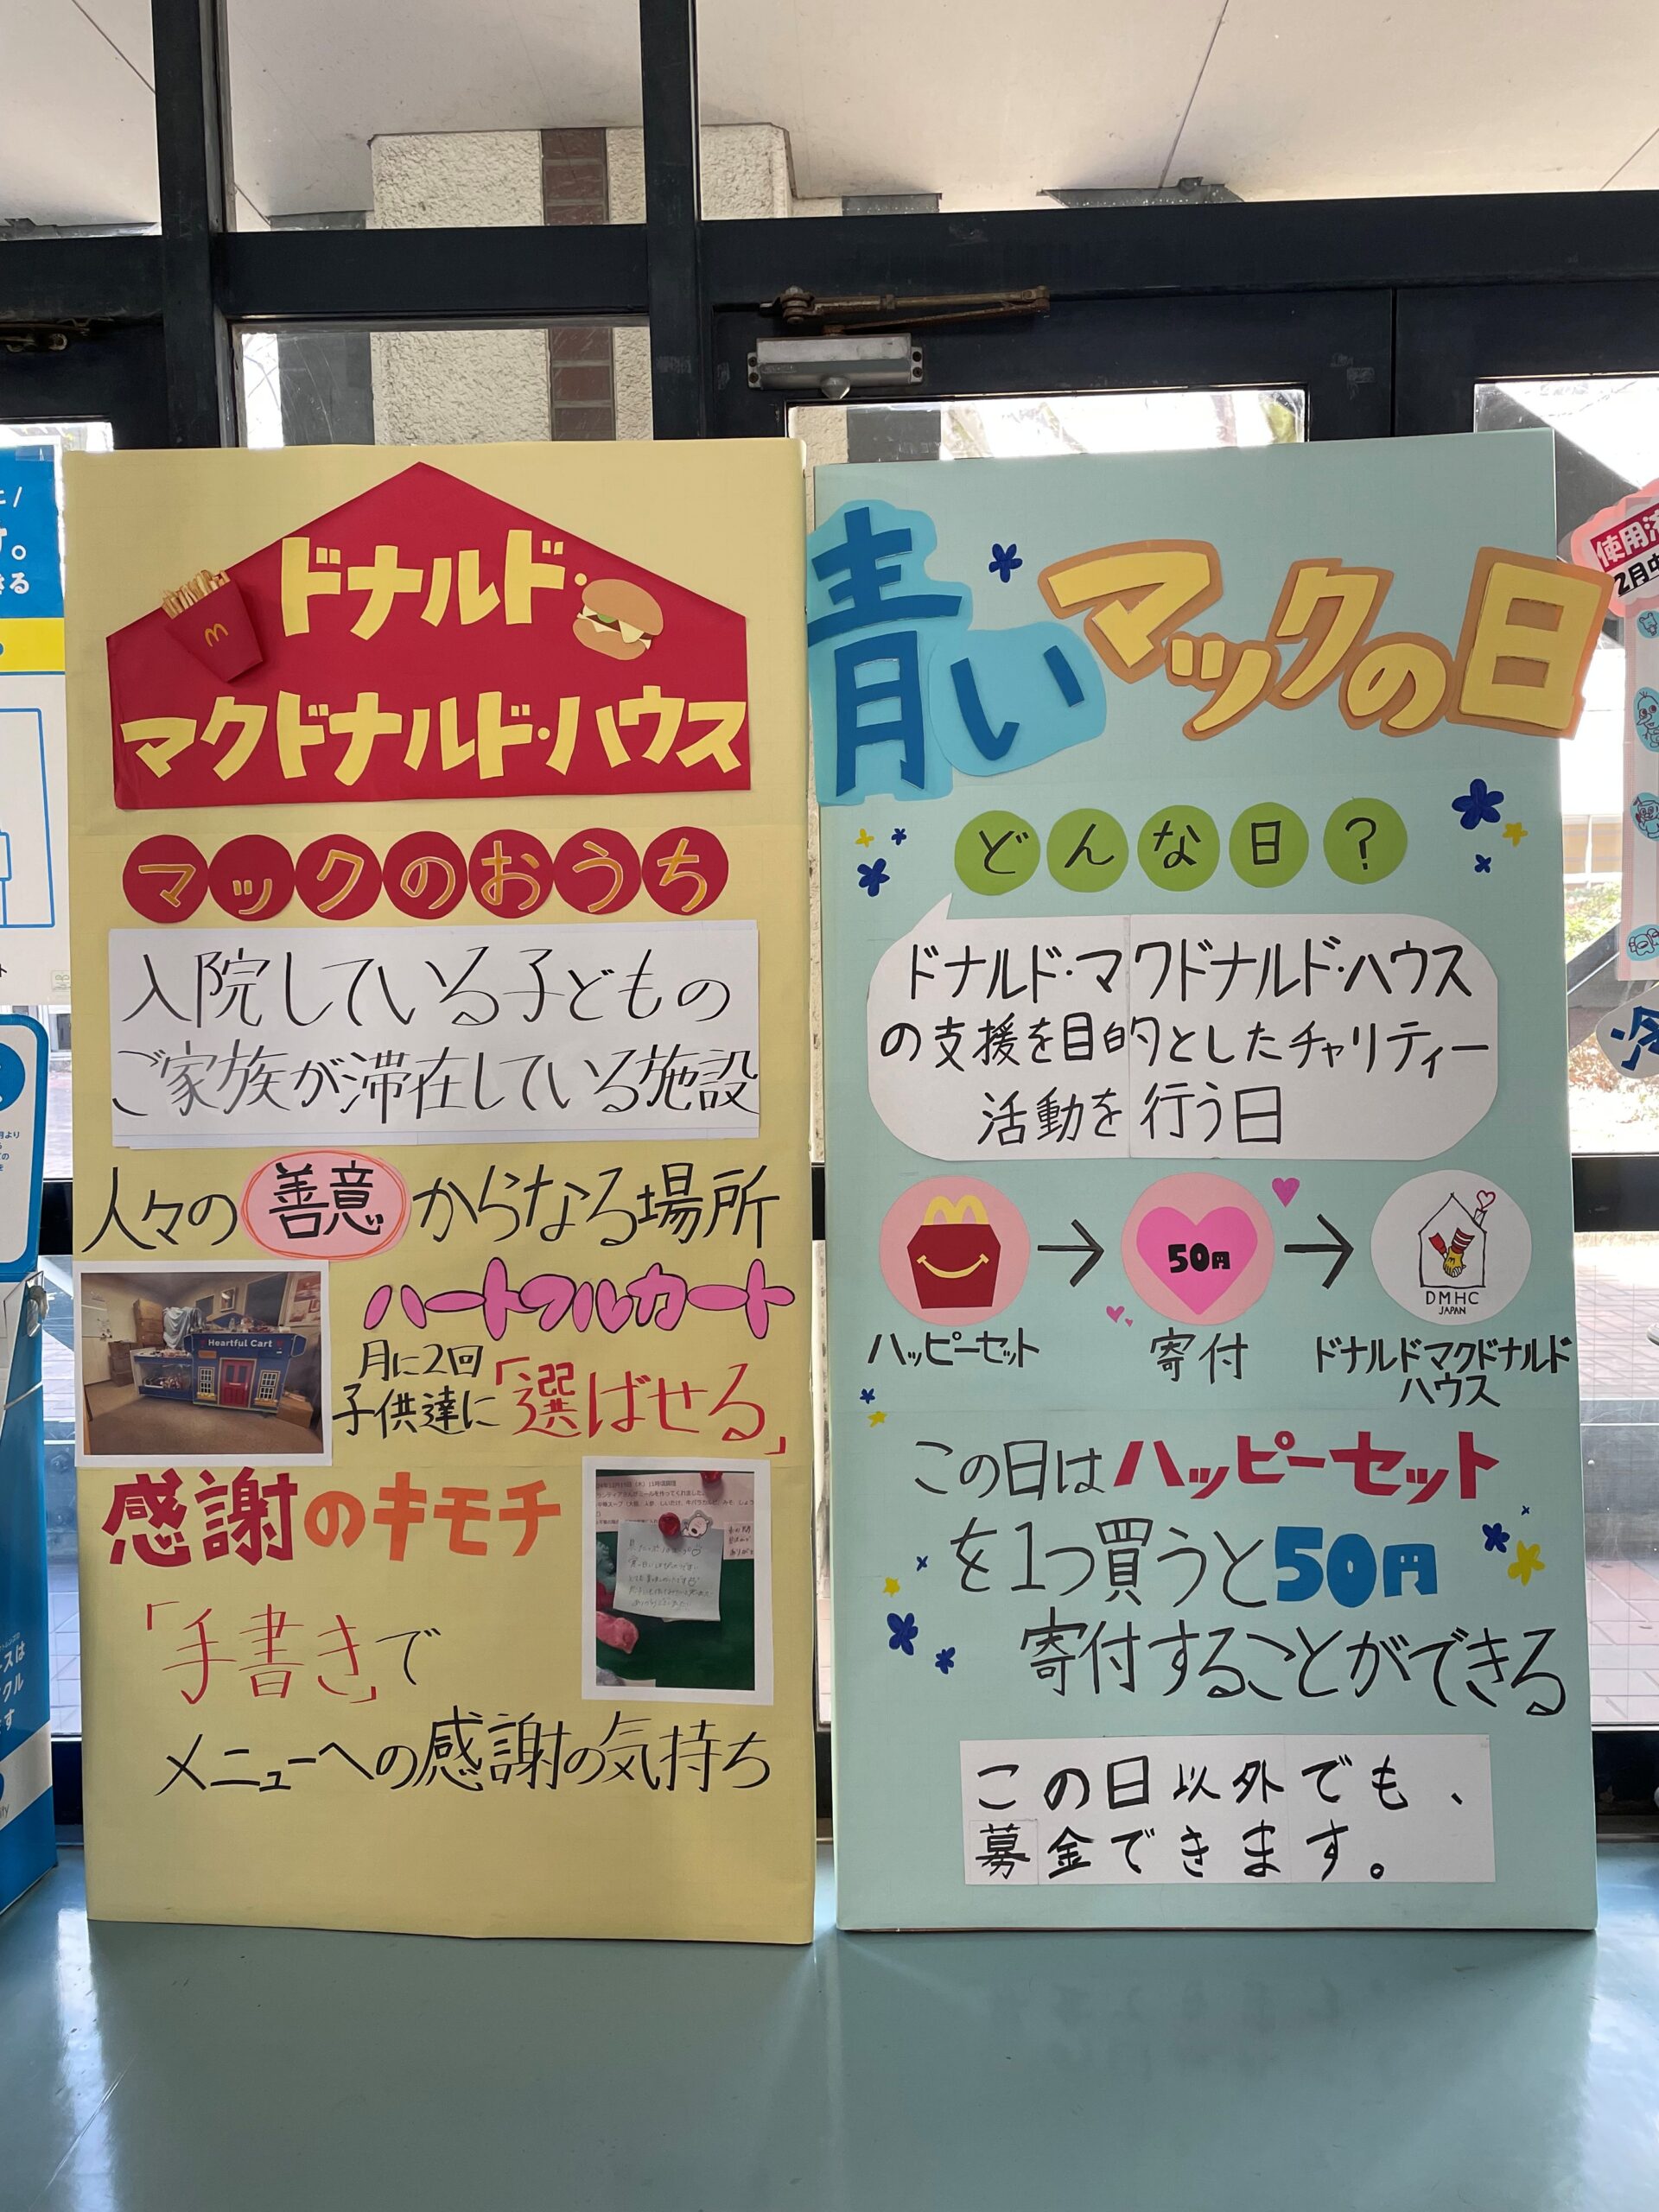 ドナルド・
マクドナルド・ハウス
マックのおうち
入院している子どもの
ご家族が滞在している施設
人々の善意からなる場所
Heartful Cart
ハートフルカート
月に2回
子供達に「選ばせる」
感謝のキモチ
「手書き」で
メニューへの感謝の気持ち
青いマックの日
どんな日?
ドナルド・マクドナルド・ハウス
の支援を目的としたチャリティー
活動を行う日
50円
DMHC
JAPAN
ハッピーセット
寄付
ドナルドマクドナルド
ハウス
この日はハッピーセット
を1つ買うと50円
寄付することができる
この日以外でも、
募金できます。